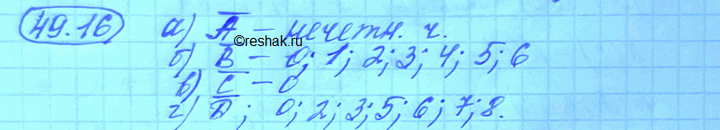 49.16 а) A̅ – нечетн. ч.
©reshak.ru
б) B̅ – 0; 1; 2; 3; 4; 5; 6
в) C̅ – 0
г) D̅; 0; 2; 3; 5; 6; 7; 8.